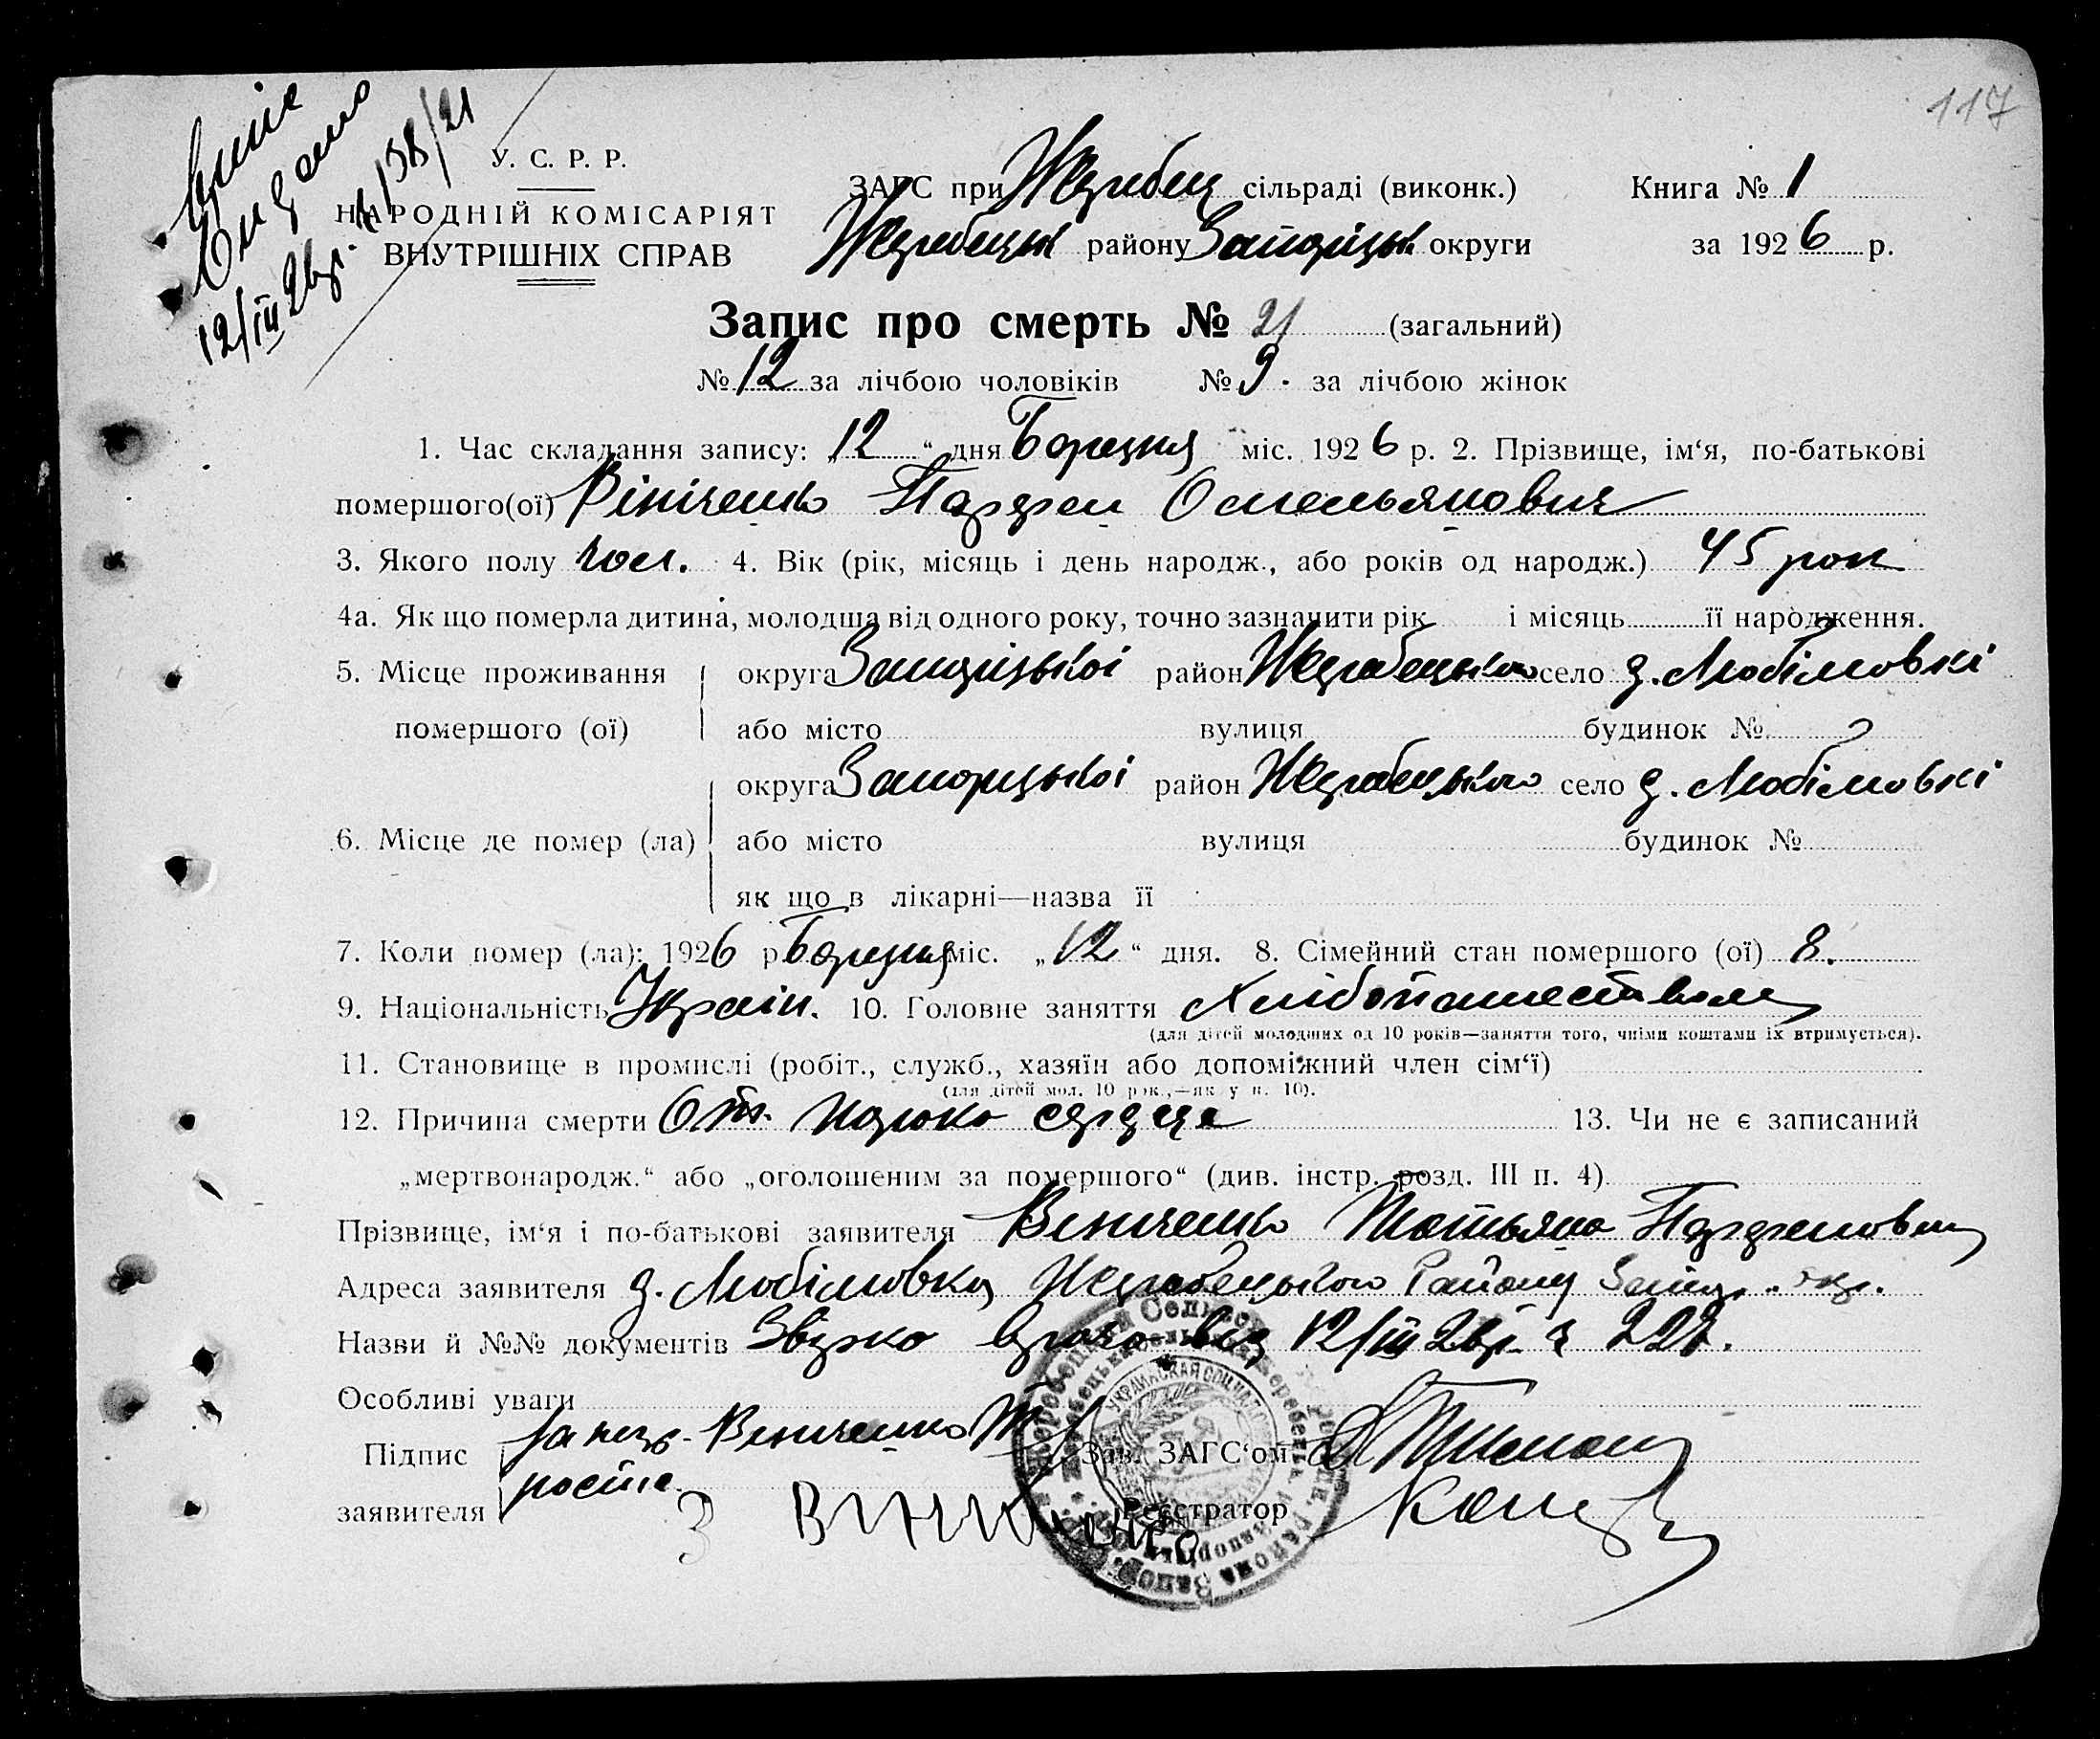 117
У. С. Р. Р.
НАРОДНІЙ КОМІСАРІЯТ
ВНУТРІШНІХ СПРАВ
12/III 26р. № /38/21
ЗАГС при Жеребец сільраді (виконк.) Книга № 1
Жеребецьк району Запоріцьк округи за 1926 р.
Запис про смерть № 21 (загальний)
№ 12 за лічбою чоловіків № 9. за лічбою жінок
1. Час складання запису: „12“ дня Березня міс. 1926 р. 2. Прізвище, ім‘я, по-батькові
помершого(ої) Вініченко Парфен Омельянович
3. Якого полу чол. 4. Вік (рік, місяць і день народж., або років од народж.) 45 рок
4а. Як що померла дитина, молодша від одного року, точно зазначити рік і місяць її народження.
5. Місце проживання округа Запоріцькоі район Жеребецького село д. Любімовкі
помершого (ої) або місто вулиця будинок №
округа Запоріцькоі район Жеребецького село д. Любімовкі
6. Місце де помер (ла) або місто вулиця будинок №
як що в лікарні—назва її
7. Коли помер (ла): 1926 р. Березня міс. „12“ дня. 8. Сімейний стан помершого (ої) в.
9. Національність Украін. 10. Головне заняття Хлібопашеством
(для дітей молодших од 10 років—заняття того, чиїми коштами їх втримується).
11. Становище в промислі (робіт., служб., хазяїн або допоміжний член сім‘ї)
(для дітей мол. 10 рок.,—як у п. 10).
12. Причина смерти От. порока сердца 13. Чи не є записаний
„мертвонародж.“ або „оголошеним за помершого“ (див. інстр. розд. III п. 4)
Прізвище, ім‘я і по-батькові заявителя Вениченко Татьяна Парфеновна
Адреса заявителя д. Любімовка Жеребецького Району Запор. окр.
Назви й №№ документів врача від 12/III 26р. № 227.
Особливі уваги
Підпис Вениченко Т Зав. ЗАГС‘ом
заявителя З Виниченко Реєстратор
УКРАИНСКАЯ СОЦИАЛ